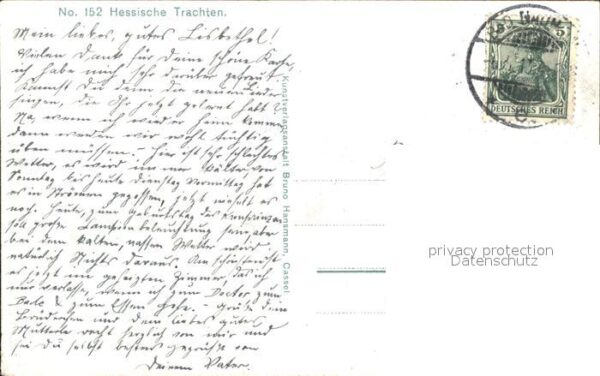 No. 152 Hessische Trachten.
Mein liebes, gutes Lisbethel!
Vielen Dank für Deine schöne Karte,
ich habe mich sehr darüber gefreut.
Kannst Du denn die neuen Lieder
singen, die Ihr jetzt gelernt habt?
Na, wenn ich wieder heim komme,
dann werden wir wohl tüchtig
üben müssen. - Hier ist sehr schlechtes
Wetter, es wird immer kälter, von
Sonntag bis heute Dienstag Vormittag hat
es in Strömen gegossen, jetzt nieselt es
noch. Heute, zum Geburtstag des Kronprinzen
soll große Lampionbeleuchtung sein, aber
bei dem kalten, nassen Wetter wird
natürlich Nichts daraus. Am schönsten ist
es jetzt im geheizten Zimmer, das ich
nur verlasse, wenn ich zum Doctor, zum
Bade & zum Essen gehe. - Grüße dein
Brüderchen und dein liebes gutes
Mutterle recht herzlich von mir und
sei Du selbst bestens gegrüßt von
Deinem Vater.
Kunstverlagsanstalt Bruno Hansmann, Cassel
5 5
DEUTSCHES REICH
privacy protection
Datenschutz